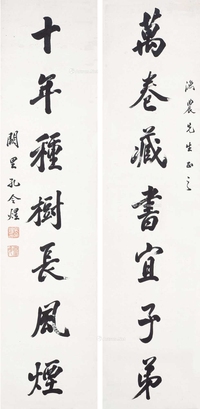 洪農先生正之
萬卷藏書宜子弟
十年種樹長風煙
闕里孔令煜